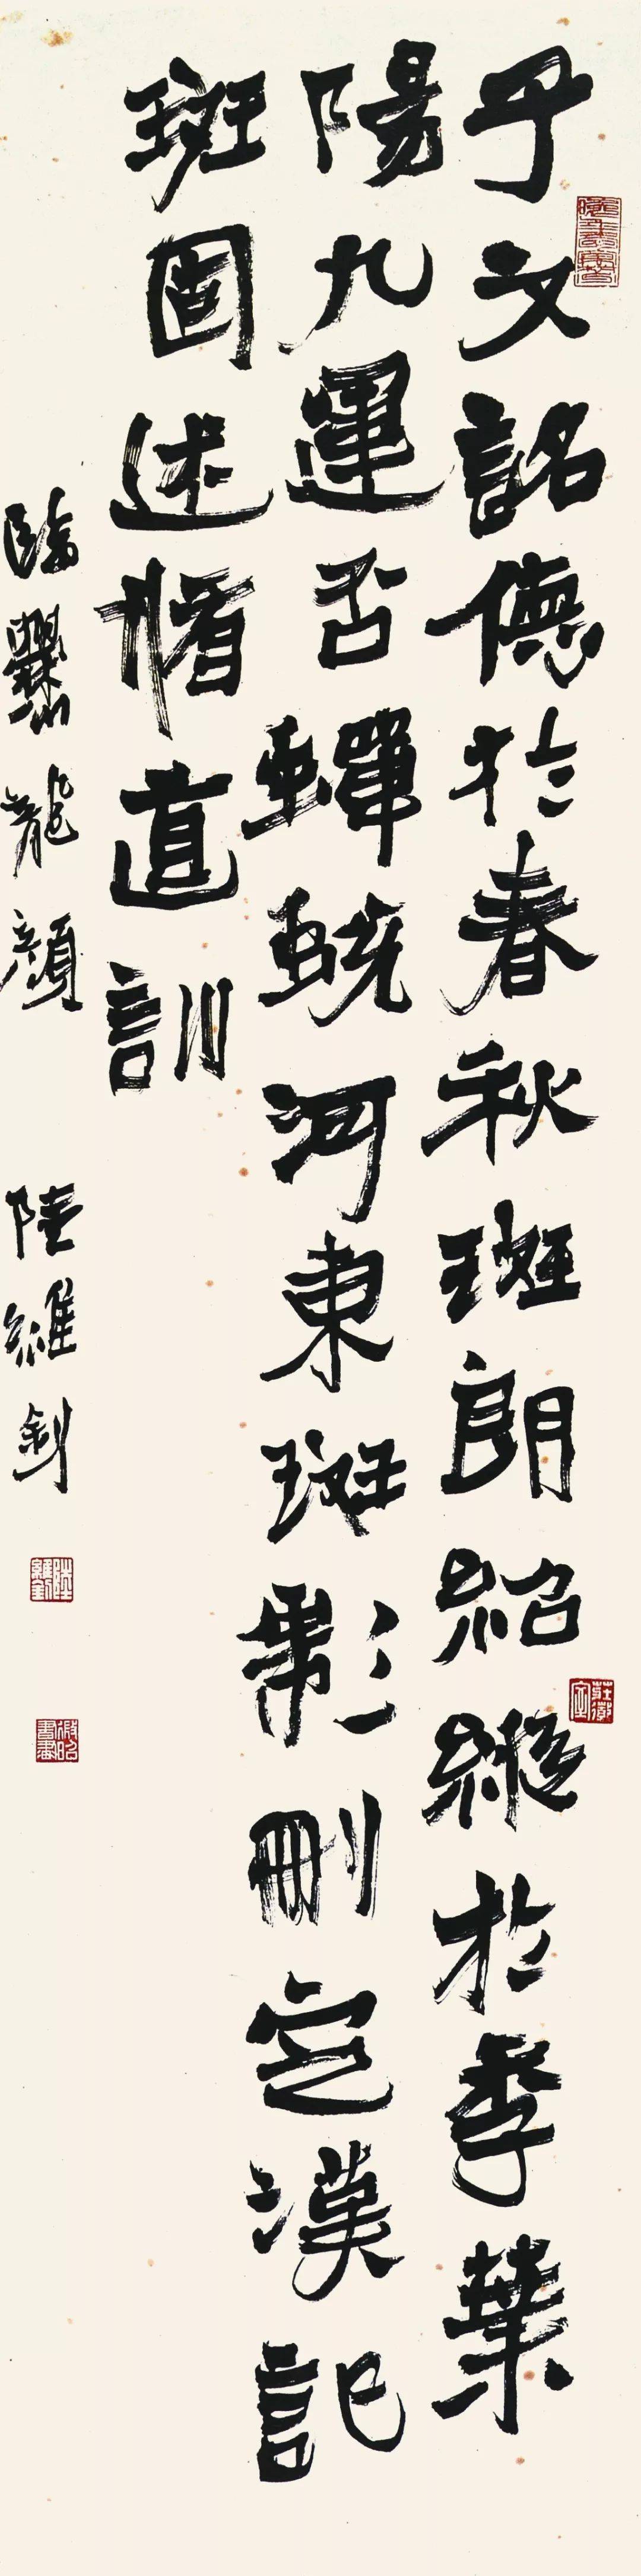 子文詺德於春秋斑朗紹縱於季葉
陽九運否蟬蛻河東斑彪刪定漢記
斑固述脩直訓
臨爨龍顏 陸維釗
陸維釗